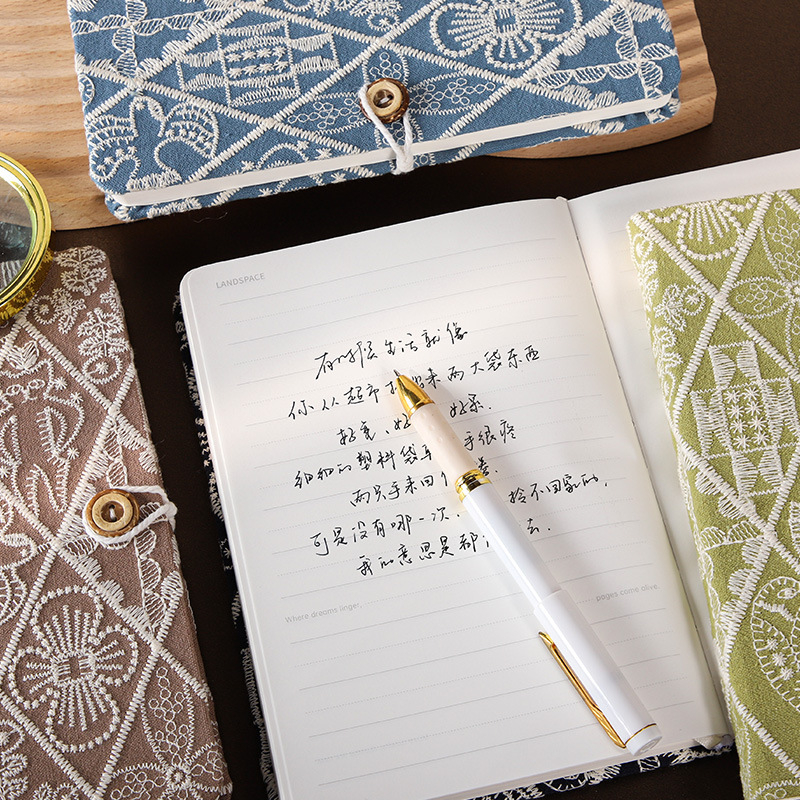 LANDSPACE
有时候生活就像
你从超市 来两大袋东西
好重、好 好累.
细细的塑料袋 手很疼
两只手来回
可是没有哪一次. 拎不回家的,
我的意思是都 去.
Where dreams linger, pages come alive.